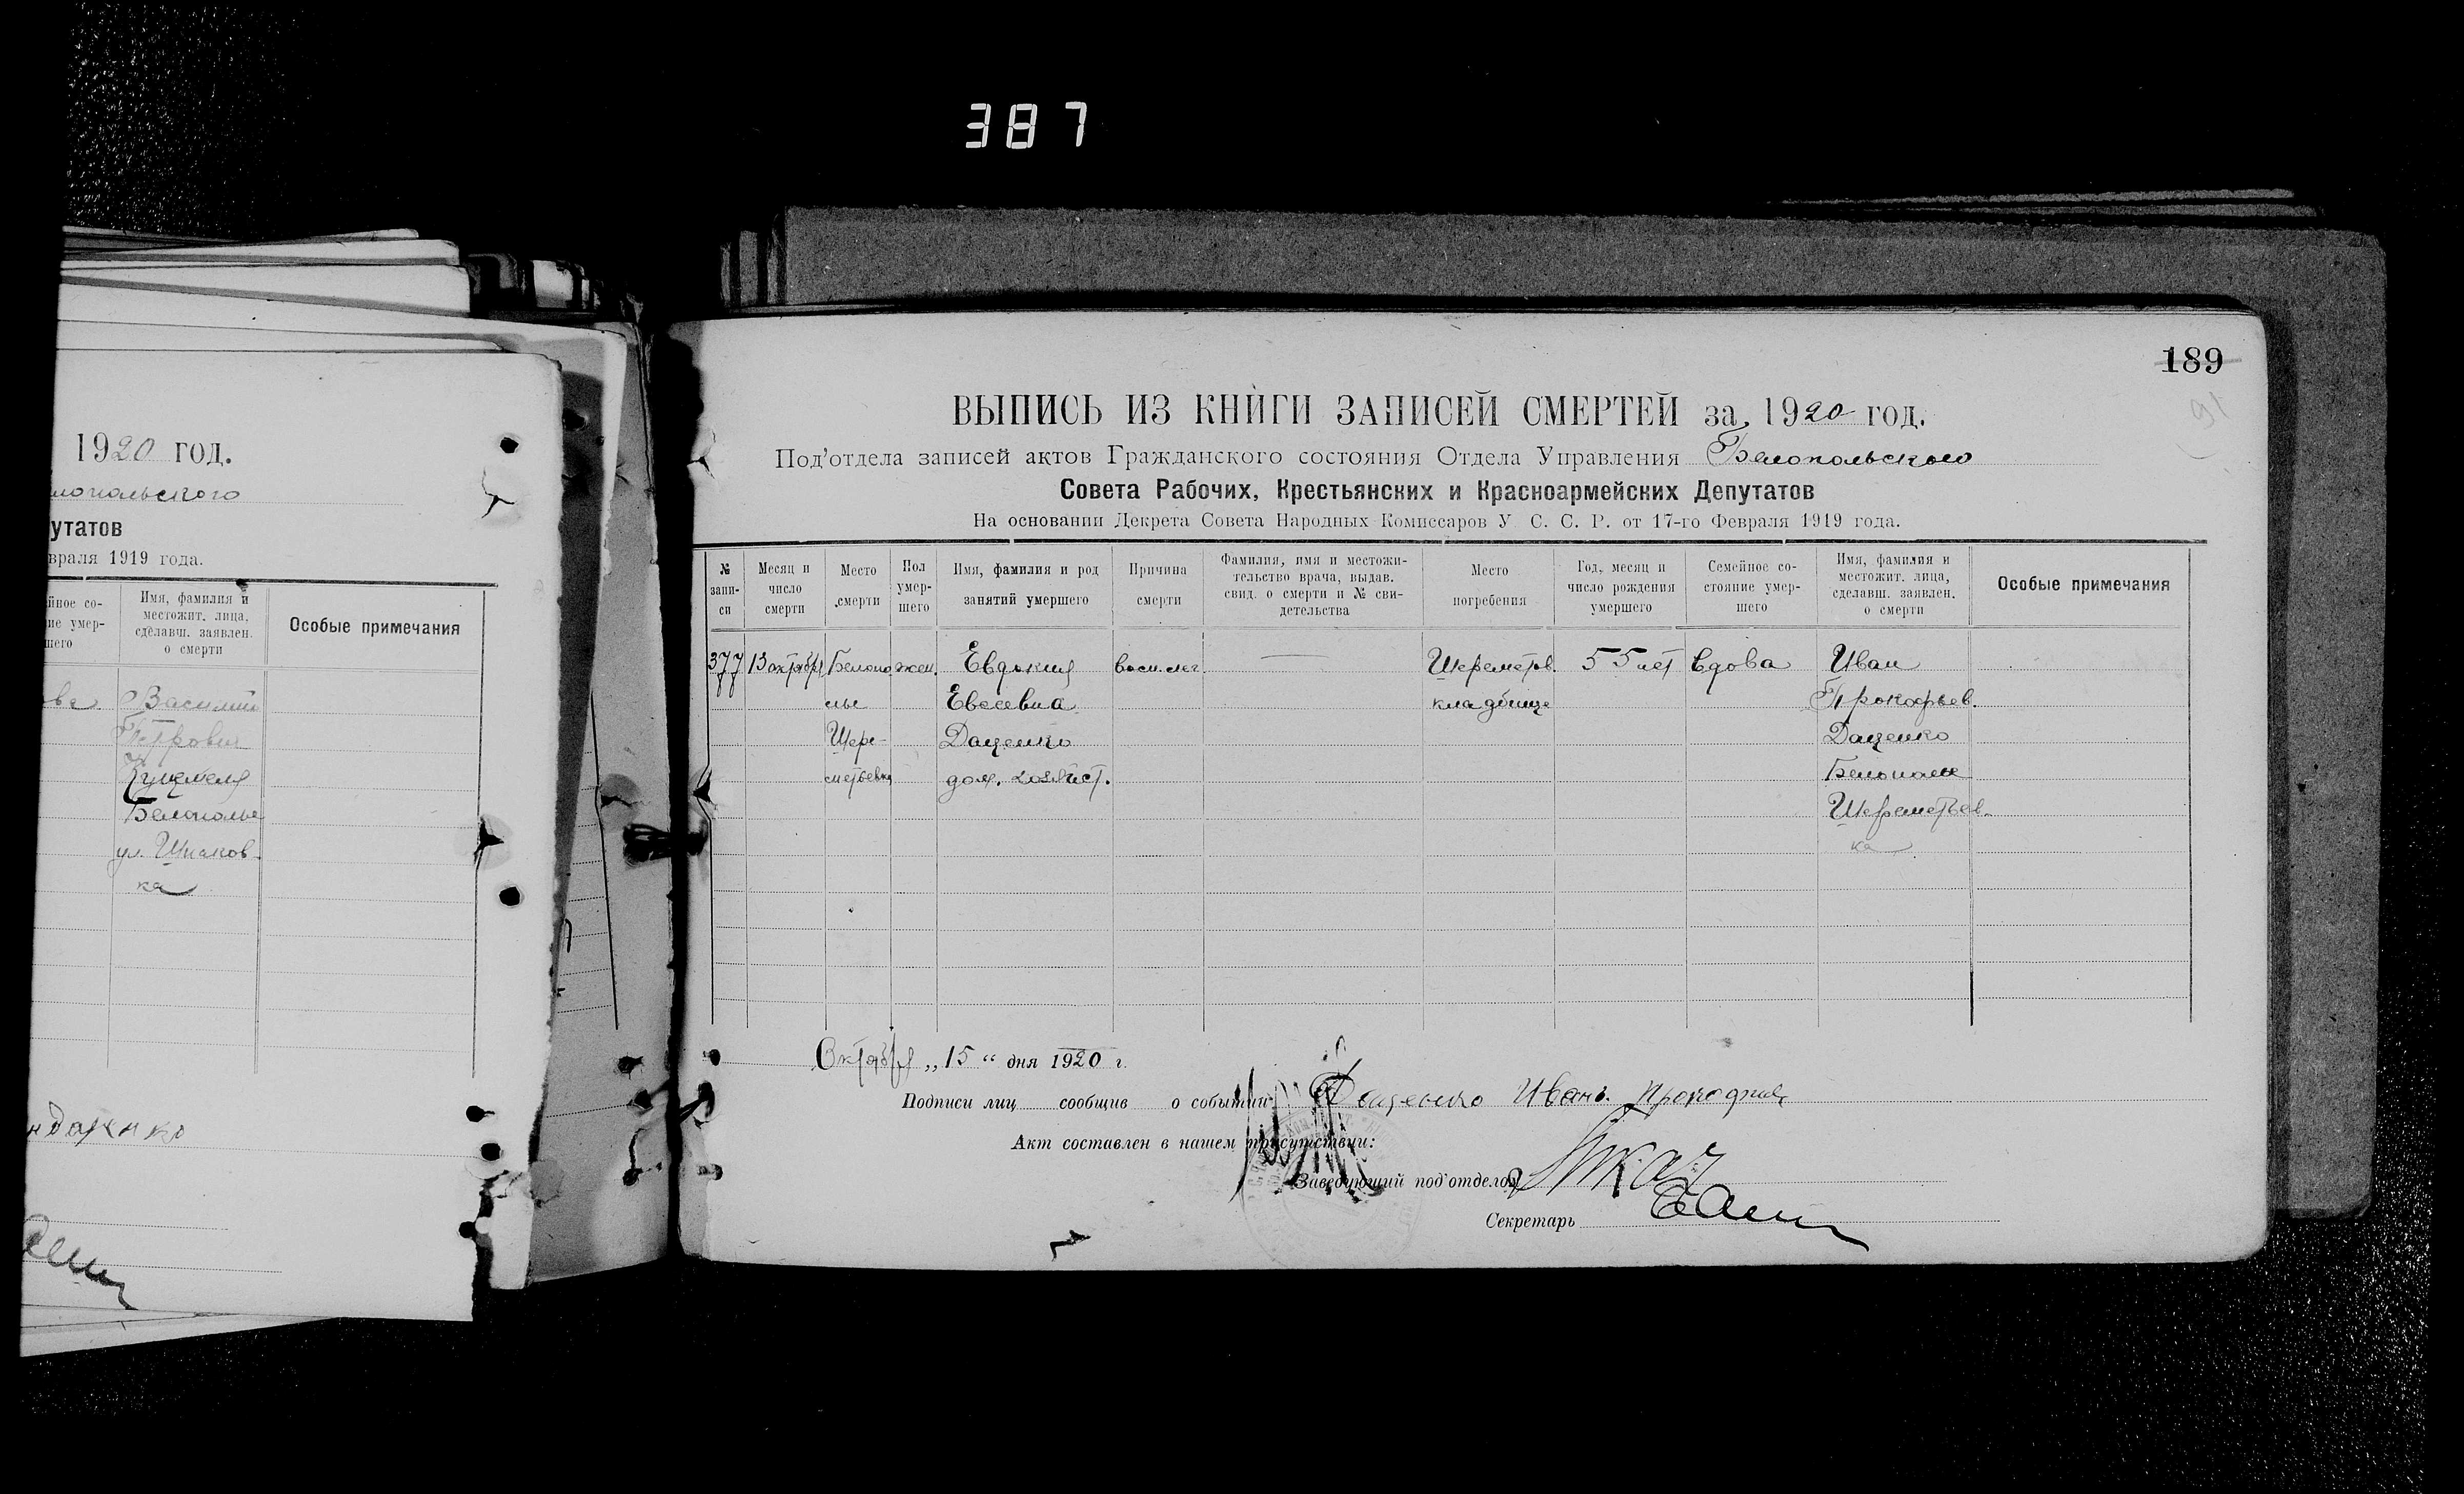 387
1920 год.
лопольского
утатов
враля 1919 года.
йное со-
ие умер-
шего
Имя, фамилия и
местожит. лица,
сделавш. заявлен.
о смерти
Особые примечания
Василий
Петрович
Белополье
ул. Шпаков-
ка
189
91
ВЫПИСЬ ИЗ КНИГИ ЗАПИСЕЙ СМЕРТЕЙ за 1920 год.
Под'отдела записей актов Гражданского состояния Отдела Управления Белопольского
Совета Рабочих, Крестьянских и Красноармейских Депутатов
На основании Декрета Совета Народных Комиссаров У. С. С. Р. от 17-го Февраля 1919 года.
№
запи-
си
Месяц и
число
смерти
Место
смерти
Пол
умер-
шего
Имя, фамилия и род
занятий умершего
Причина
смерти
Фамилия, имя и местожи-
тельство врача, выдав.
свид. о смерти и № сви-
детельства
Место
погребения
Год, месяц и
число рождения
умершего
Семейное со-
стояние умер-
шего
Имя, фамилия и
местожит. лица,
сделавш. заявлен.
о смерти
Особые примечания
377
13 октября
Белопо
лье
Шере-
метьевка
жен.
Евдокия
Евсеевна
Даценко
дом. хозяйст.
восп. лег.
Шереметьев.
кладбище
55 лет
вдова
Иван
Прокофьев.
Даценко
Белополье
Шереметьев-
ка
Октября „15“ дня 1920 г.
Подписи лиц сообщив о событии: Даценко Иванъ Прокофиев
Акт составлен в нашем присутствии:
Заведующий под'отделом Ткач
Секретарь